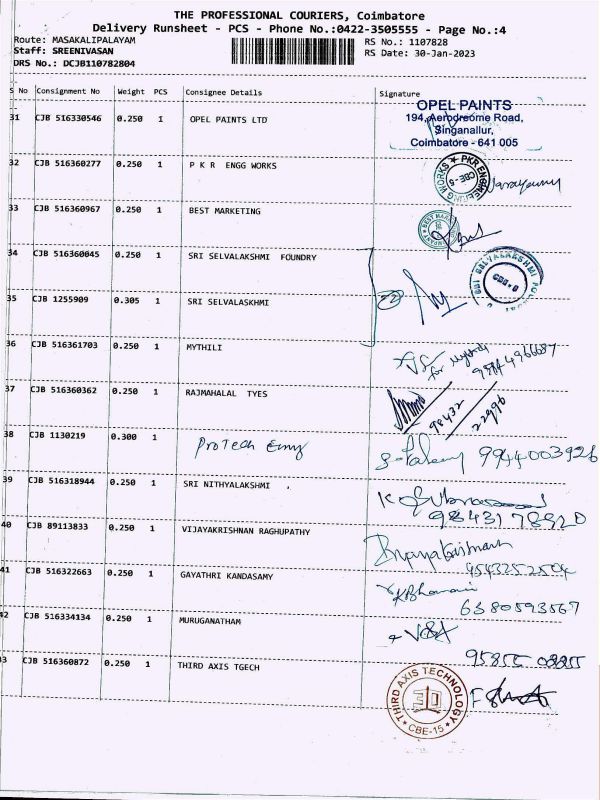 THE PROFESSIONAL COURIERS, Coimbatore
Delivery Runsheet - PCS - Phone No.:0422-3505555 - Page No.:4
Route: MASAKALIPALAYAM
RS No.: 1107828
Staff: SREENIVASAN
RS Date: 30-Jan-2023
DRS No.: DCJB110782804
S No Consignment No Weight PCS Consignee Details Signature
31 CJB 516330546 0.250 1 OPEL PAINTS LTD
OPEL PAINTS
194, Aerodreome Road,
Singanallur,
Coimbatore - 641 005
32 CJB 516360277 0.250 1 P K R ENGG WORKS
PKR ENGINEERING WORKS CBE-5
33 CJB 516360967 0.250 1 BEST MARKETING
34 CJB 516360045 0.250 1 SRI SELVALAKSHMI FOUNDRY
35 CJB 1255909 0.305 1 SRI SELVALASKHMI
22
36 CJB 516361703 0.250 1 MYTHILI
for
37 CJB 516360362 0.250 1 RAJMAHALAL TYES
98432
22996
38 CJB 1130219 0.300 1 ProTech Engg
9944003926
39 CJB 516318944 0.250 1 SRI NITHYALAKSHMI
9843178920
40 CJB 89113833 0.250 1 VIJAYAKRISHNAN RAGHUPATHY
41 CJB 516322663 0.250 1 GAYATHRI KANDASAMY
6380593567
42 CJB 516334134 0.250 1 MURUGANATHAM
43 CJB 516360872 0.250 1 THIRD AXIS TGECH
THIRD AXIS TECHNOLOGY
3D
CBE-15